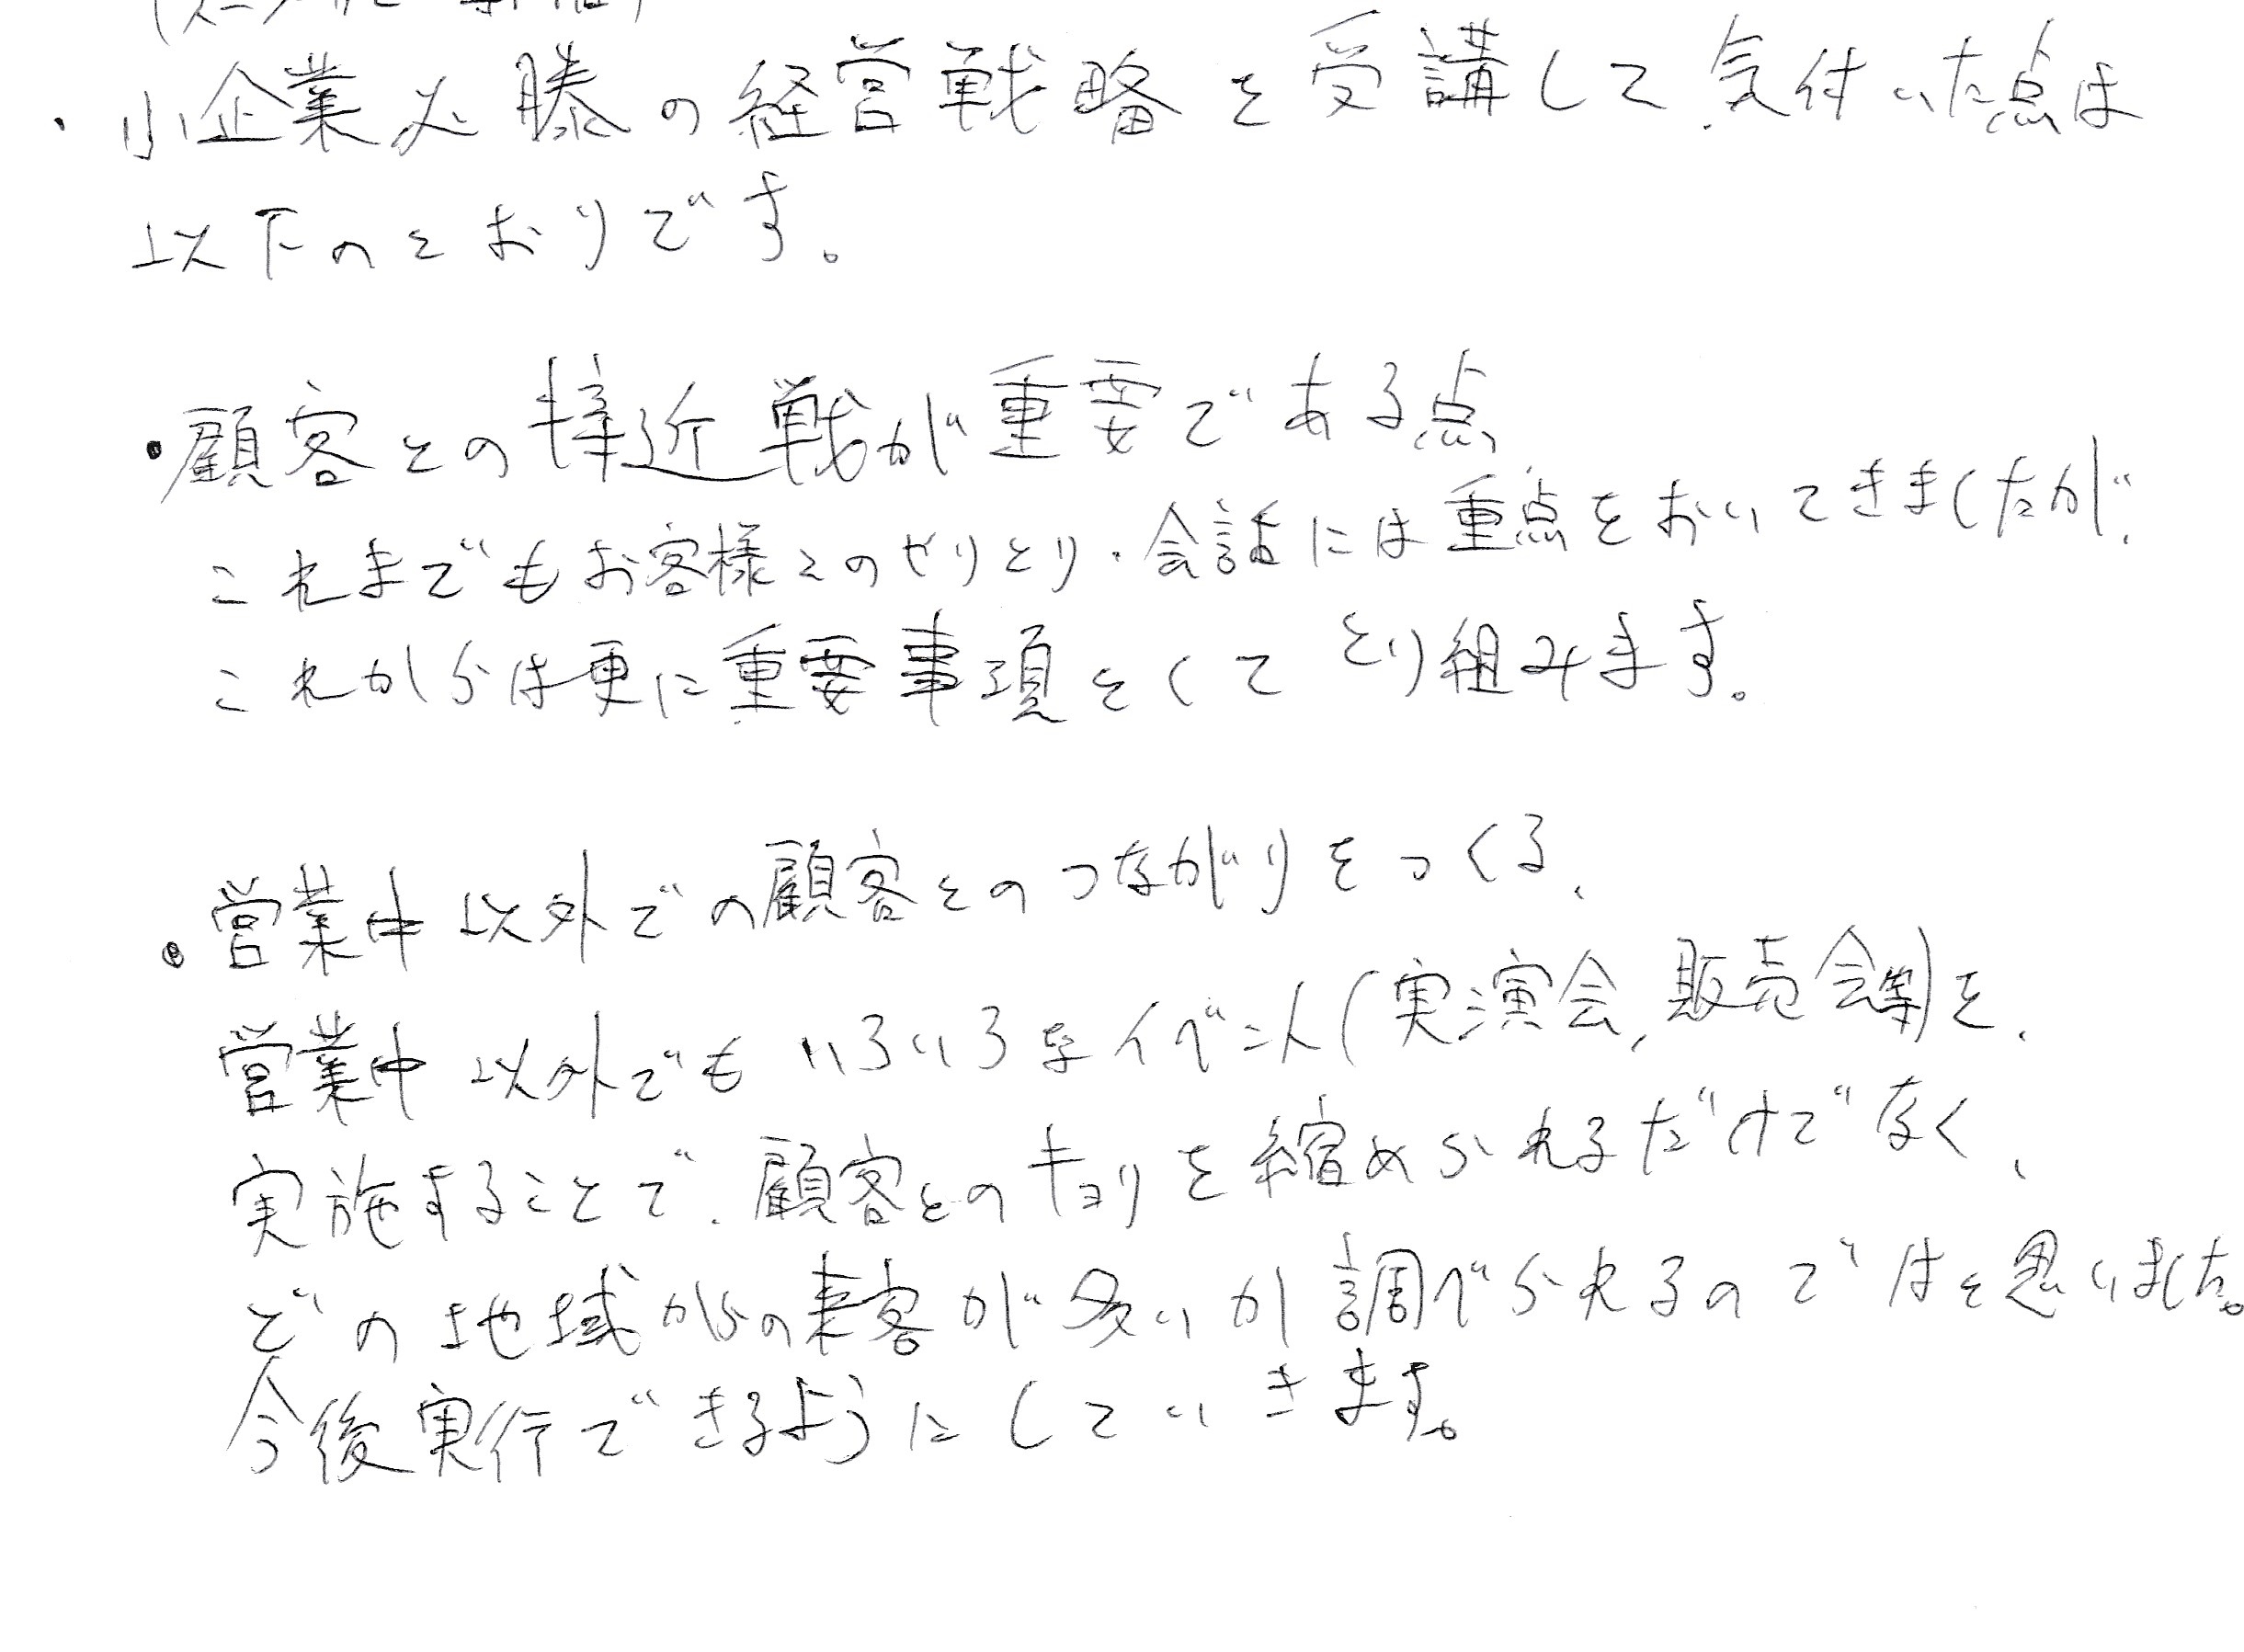 ・小企業必勝の経営戦略を受講して気付いた点は
以下のとおりです。
・顧客との接近戦が重要である点
これまでもお客様とのやりとり・会話には重点をおいてきましたが、
これからは更に重要事項としてとり組みます。
・営業中以外での顧客とのつながりをつくる、
営業中以外でもいろいろなイベント(実演会,販売会等)を、
実施することで、顧客とのキョリを縮められるだけでなく、
どの地域からの来客が多いか調べられるのではと思いました。
今後実行できるようにしていきます。